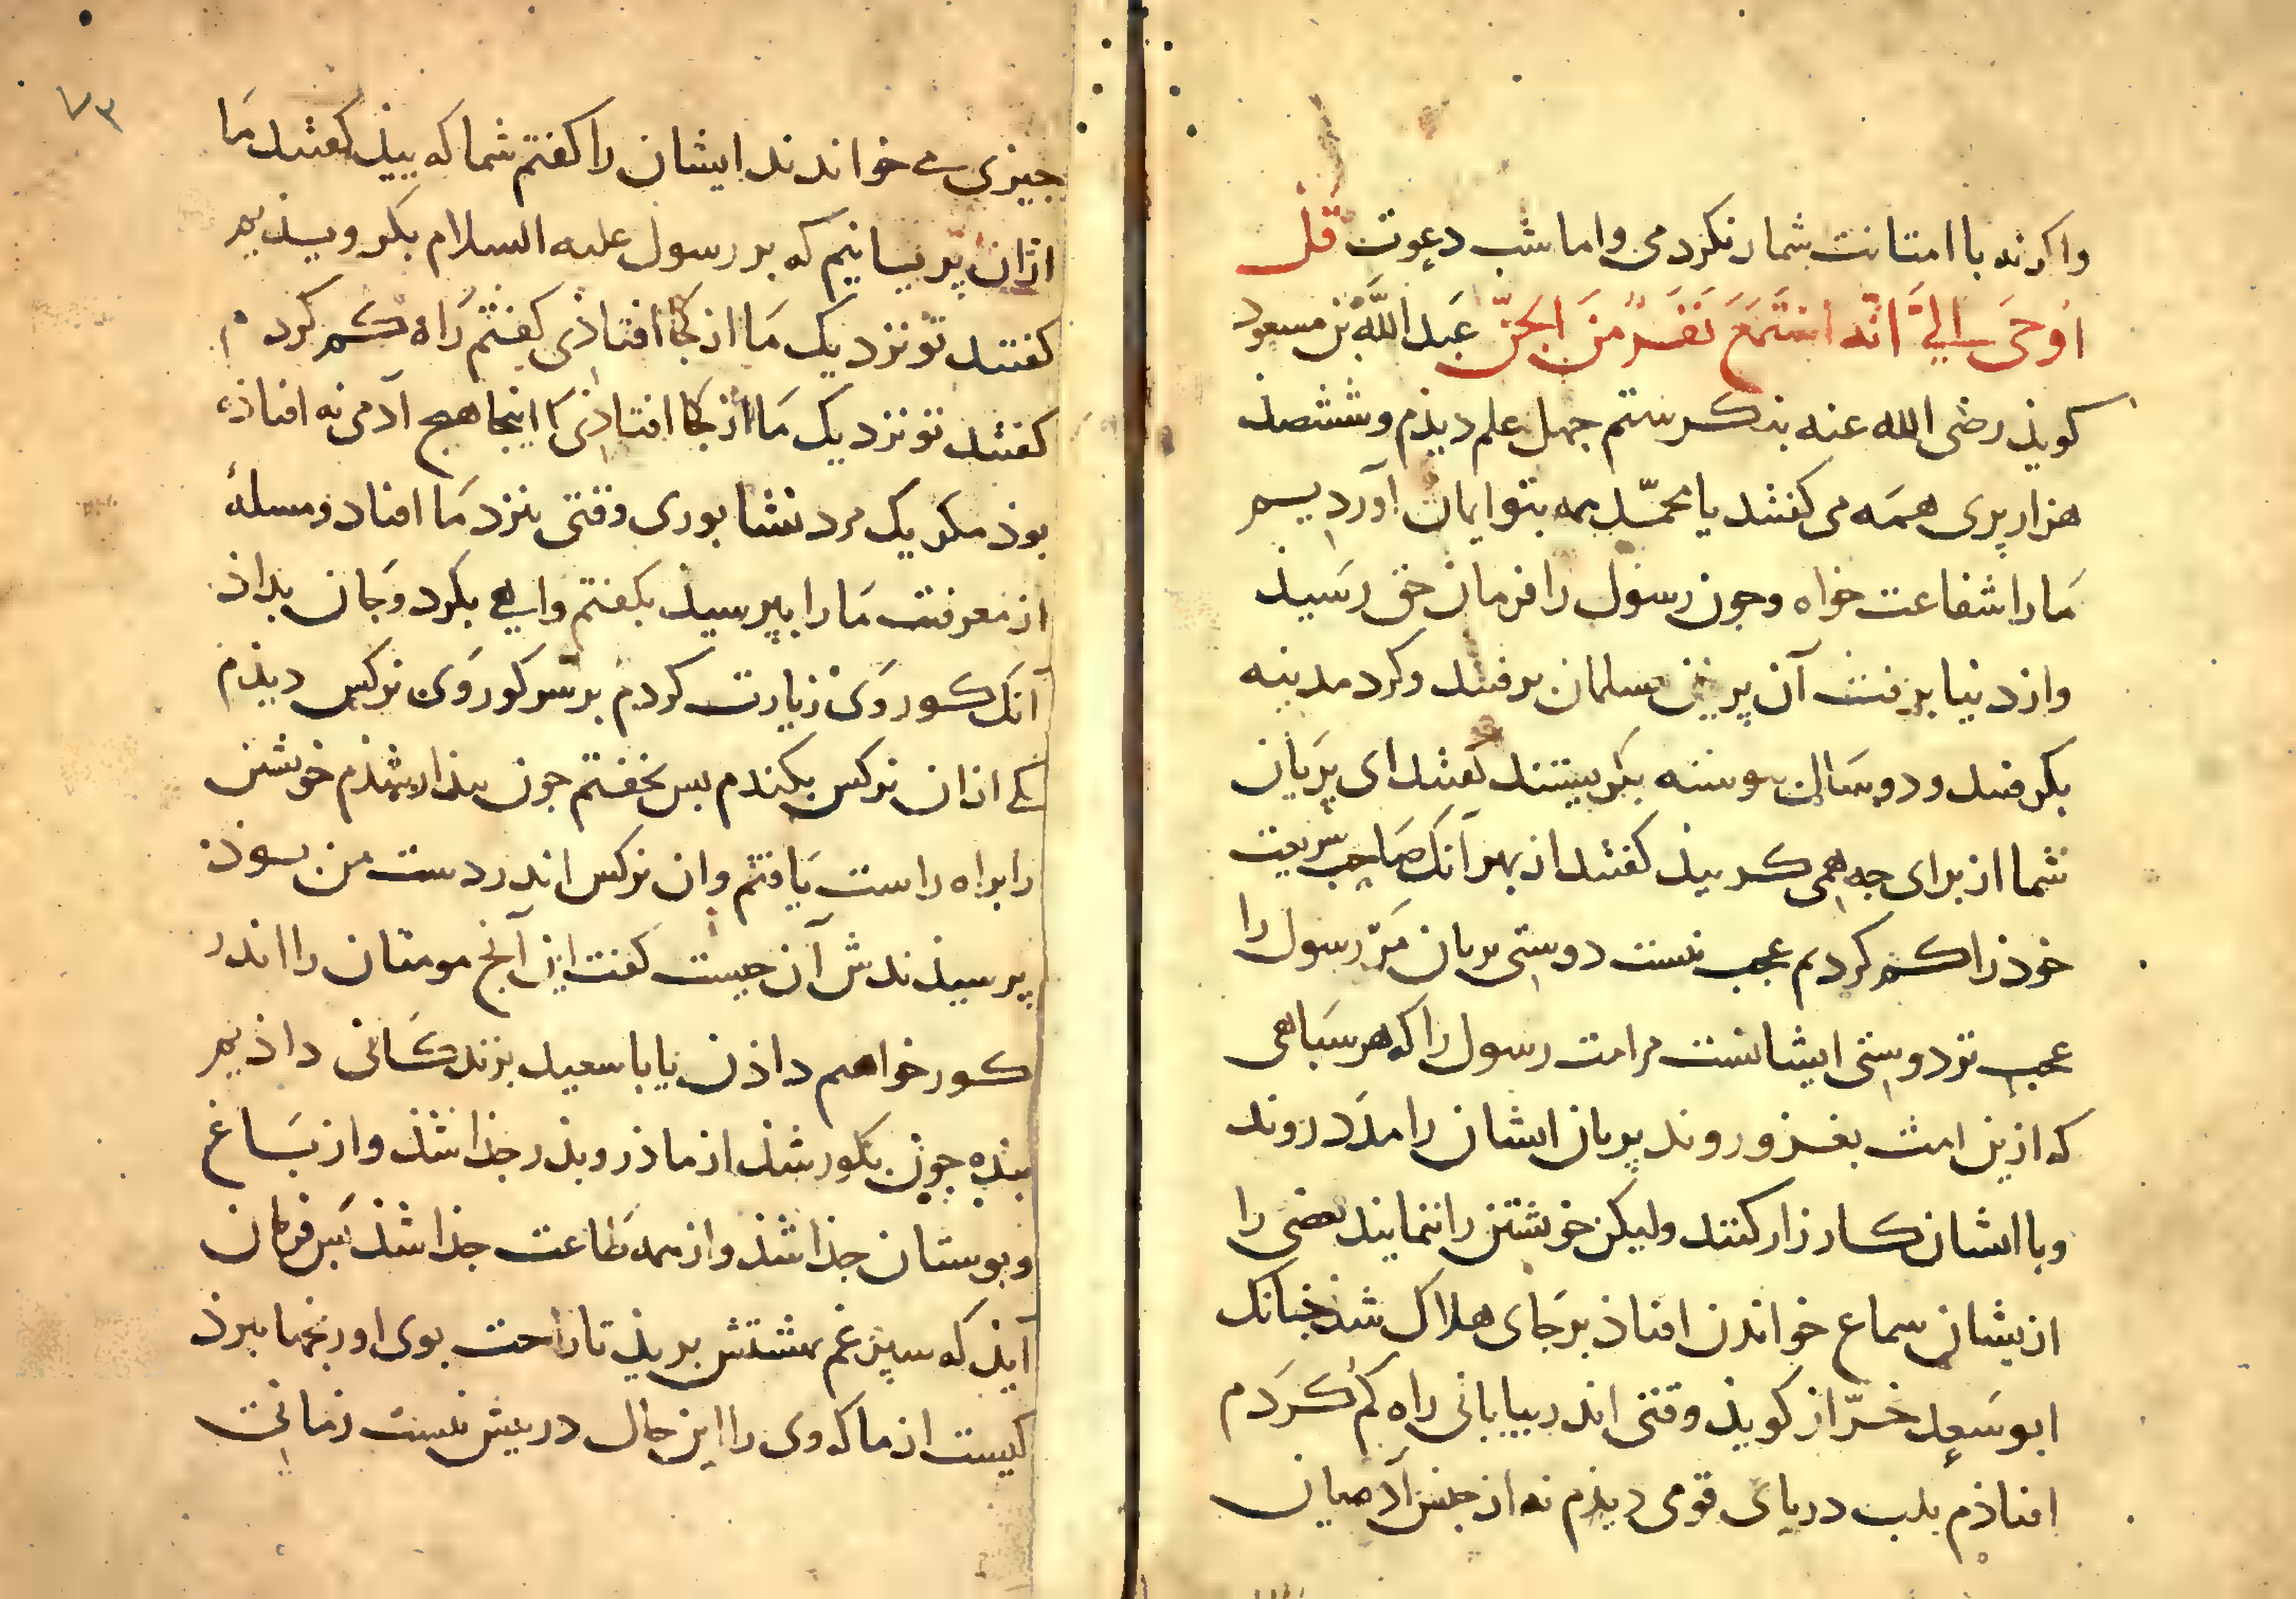 واکرنه با امتانت شمار نکردمی واماشب دعوت قل
اوحی الی انه استمع نفر من الجن عبد الله بن مسعود
کویذ رضی الله عنه بنکرستم جهل علم دیذم وششصذ
هزار پری همه می کفتند یا محمد همه بتو ایمان آوردیم
ما را شفاعت خواه وجون رسول را فرمان حق رسیذ
واز دنیا برفت آن پریان مسلمان برفتند وکرد مدینه
بکرفتند ودو سال بیوسته بکریستند کفتند ای پریان
شما از برای جه همی کریید کفتند از بهر آنک صاحب شریعت
خوذ را کم کردیم عجب نیست دوستی پریان مر رسول را
عجب تر دوستی ایشانست مر امت رسول را که هر سباهی
که ازین امت بغزو روند پریان ایشان را مدد روند
وبا ایشان کارزار کنند ولیکن خویشتن را ننمایند بعضی را
ازیشان سماع خواندن افتاذ بر جای هلاک شذ جنانک
ابو سعید خراز کویذ وقتی اندر بیابانی راه کم کردم
افتاذم بلب دریای قومی دیذم نه از جنس آدمیان
جیزی می خواندند ایشان را کفتم شما که ییذ کفتند ما
ازان پریانیم که بر رسول علیه السلام بکرویذیم
کفتند تو نزدیک ما از کجا افتاذی کفتم راه کم کردم
کفتند تو نزدیک ما از کجا افتاذی کا اینجا هیچ آدمی نه افتاذه
بوذ مکر یک مرد نشابوری وقتی بنزد ما افتاد ومسلهٔ
از معرفت ما را بپرسیذ بکفتم وایی بکرد وجان بداذ
آنک کور وی زیارت کردم بر سر کور وی نرکس دیذم
یکی ازان نرکس بکندم بس بخفتم جون بیذار شذم خویشتن
را براه راست یافتم وان نرکس اندر دست من بوذ
پرسیذندش آن جیست کفت این آنج مومنان را اندر
کور خواهم داذن یا با سعید بزندکانی داذیم
بنده جون بکور شذ از ماذر وبذر جذا شذ واز باغ
وبوستان جذا شذ واز همه طاعت جذا شذ بس فرمان
آیذ که سپرغم بهشتش بریذ تا راحت بوی او رنجها ببرذ
کیست از ما که وی را این حال در پیش نیست زمانی
۷۳